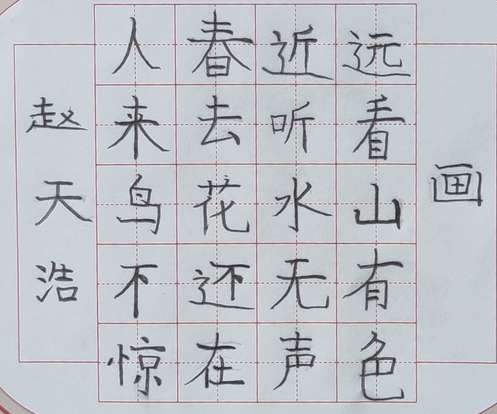 画
远看山有色
近听水无声
春去花还在
人来鸟不惊
赵天浩